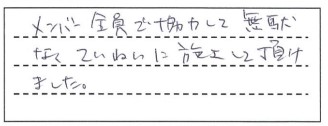 メンバー全員で協力して無駄
なくていねいに施工して頂け
ました。